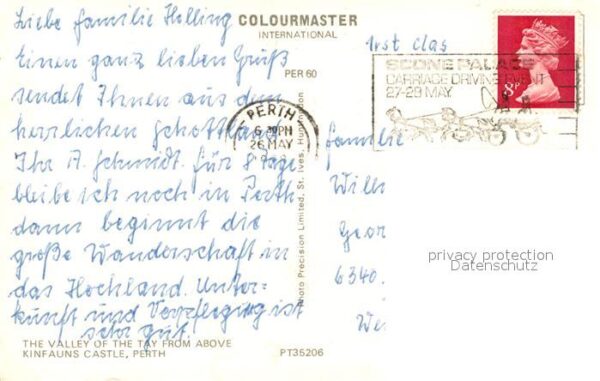 Liebe Familie Helling
COLOURMASTER
INTERNATIONAL
Einen ganz lieben Gruß
PER 60
sendet Ihnen aus dem
herrlichen Schottland
Ihr A. Schmidt. Für 8 Tage
bleibe ich noch in Perth
dann beginnt die
große Wanderschaft in
das Hochland. Unter-
kunft und Verpflegung ist
sehr gut.
THE VALLEY OF THE TAY FROM ABOVE
KINFAUNS CASTLE, PERTH
PT35206
Photo Precision Limited, St. Ives, Huntingdon
PERTH
6 PM
26 MAY
1rst Clas
SCONE PALACE
CARRIAGE DRIVING EVENT
27-29 MAY
8P
Familie
Will
Geor
6340
We
privacy protection
Datenschutz